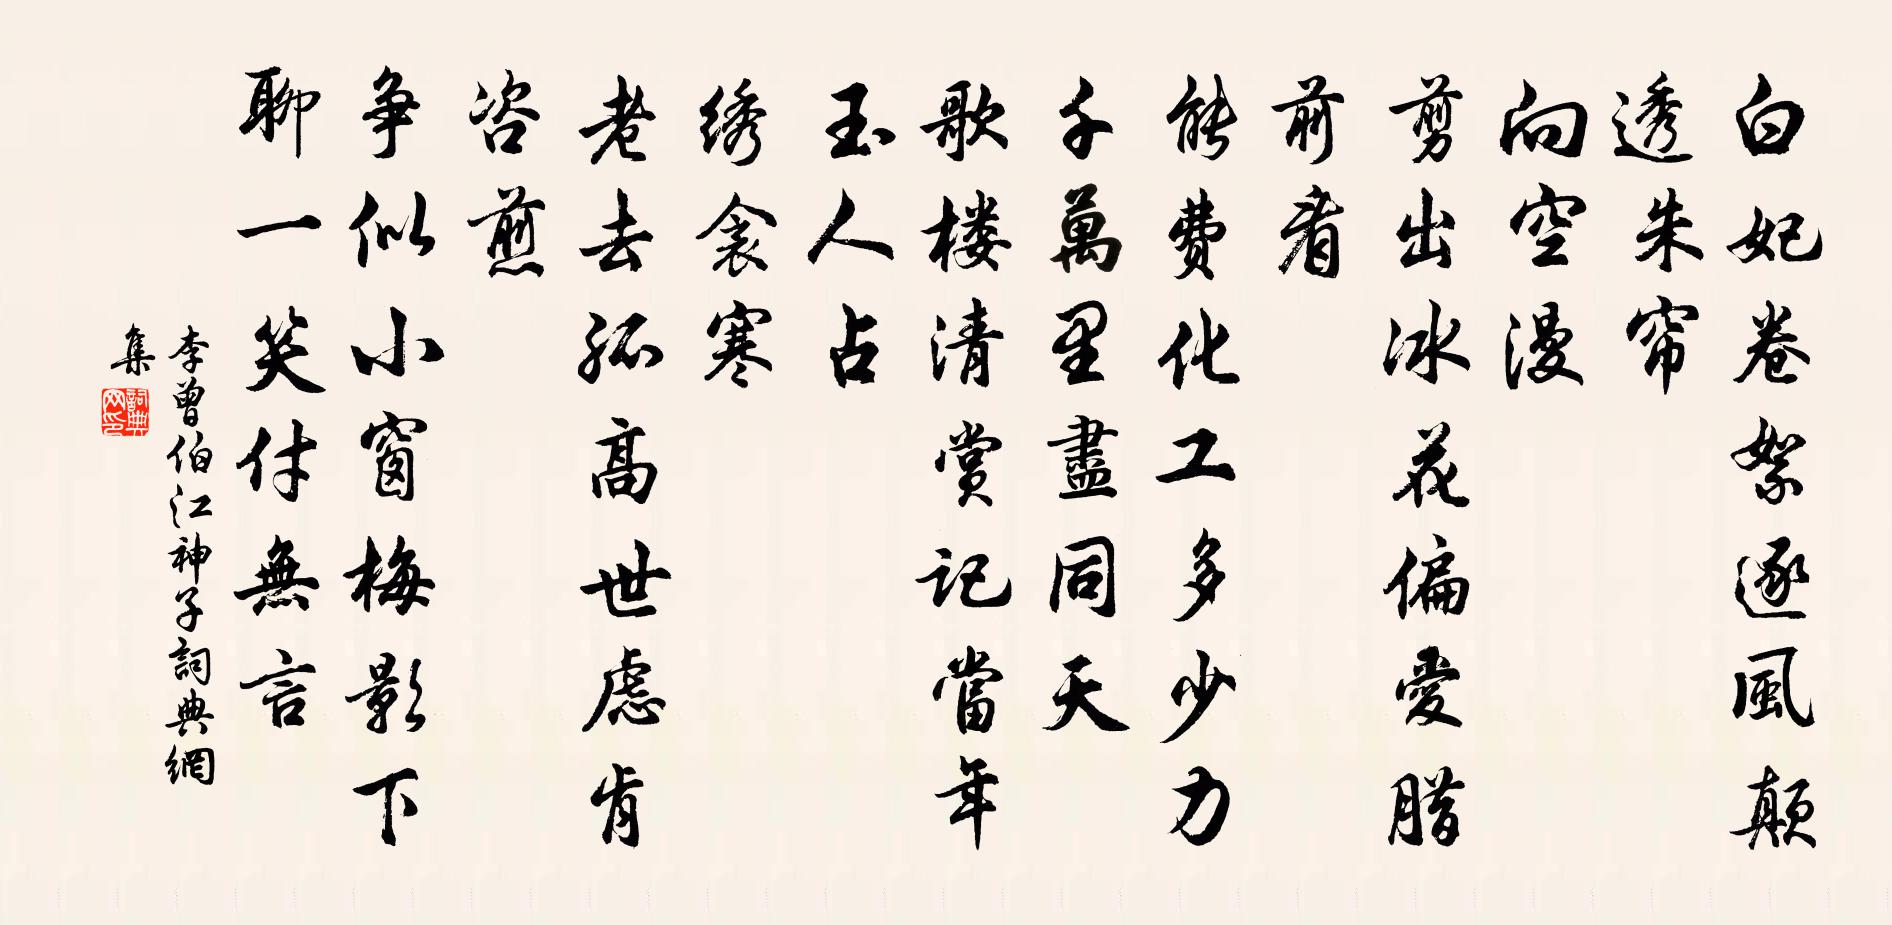 白妃卷絮逐風颠
透朱帘
向空漫
剪出冰花偏愛腊
前看
能費化工多少力
千萬里盡同天
歌楼清赏記當年
玉人占
绣衾寒
老去孤高世虑肯
咨煎
争似小窗梅影下
聊一笑付無言
李曾伯江神子詞典網
集
詞典
网印